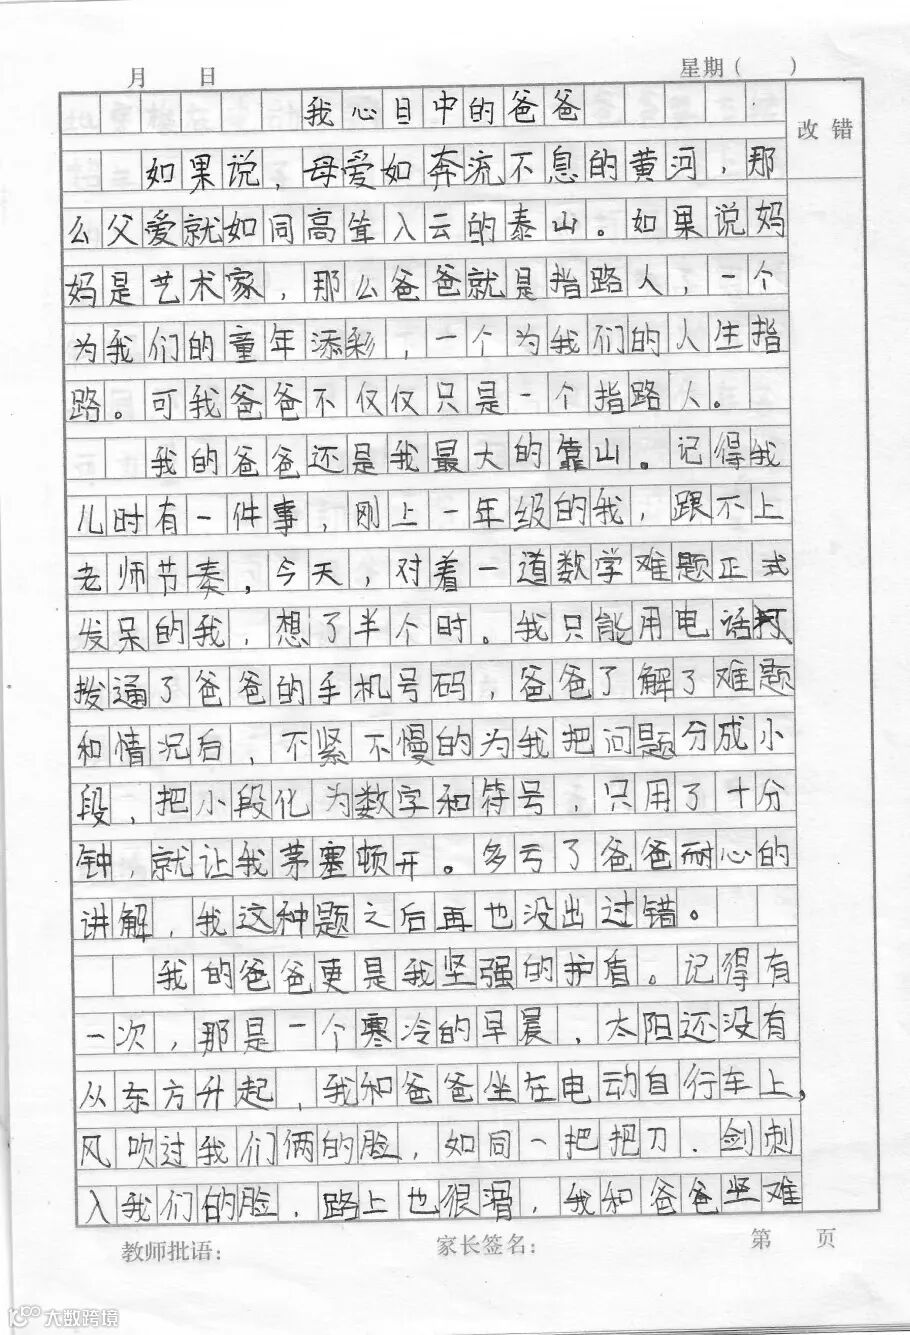 月 日 星期( )
我心目中的爸爸
改错
如果说,母爱如奔流不息的黄河,那
么父爱就如同高耸入云的泰山。如果说妈
妈是艺术家,那么爸爸就是指路人,一个
为我们的童年添彩,一个为我们的人生指
路。可我爸爸不仅仅只是一个指路人。
我的爸爸还是我最大的靠山。记得我
儿时有一件事,刚上一年级的我,跟不上
老师节奏,今天,对着一道数学难题正式
发呆的我,想了半个时。我只能用电话
拨通了爸爸的手机号码,爸爸了解了难题
和情况后,不紧不慢的为我把问题分成小
段,把小段化为数字和符号,只用了十分
钟,就让我茅塞顿开。多亏了爸爸耐心的
讲解,我这种题之后再也没出过错。
我的爸爸更是我坚强的护盾。记得有
一次,那是一个寒冷的早晨,太阳还没有
从东方升起,我和爸爸坐在电动自行车上,
风吹过我们俩的脸,如同一把把刀.剑刺
入我们的脸,路上也很滑,我和爸爸坚难
教师批语: 家长签名: 第 页
大数跨境